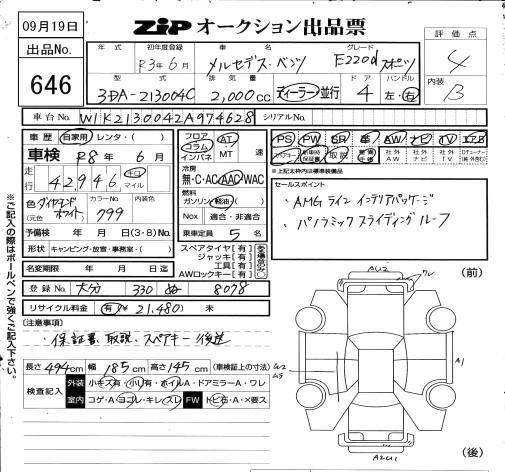 09月19日
出品No.
646
ZIP オークション出品票
評価点
4
内装
B
年式
初年度登録
車名
グレード
R3年6月
メルセデス・ベンツ
E220d スポーツ
型式
排気量
ドア
ハンドル
3DA-213004C
2,000cc
ディーラー・並行
4
左・右
車台No.
W1K2130042A974628
シリアルNo.
車歴
自家用・レンタ・( )
車検
R8年6月
走行
42,946
キロ
マイル
色
ダイヤモンドホワイト
(元色
カラーNo.
799
内装色
予備検
年 月 日(3・8)No.
形状
キャンピング・放置・事務室・( )
名変期限
年 月 日迄
登録No.
大分 330 ぬ 8078
リサイクル料金
有 ¥ 21,480
未
フロア
コラム
インパネ
AT
MT
速
冷房
無・C・AC・AAC・WAC
燃料
ガソリン・軽油・( )
Nox
適合・非適合
乗車定員
5
名
スペアタイヤ【有】
ジャッキ【有】
工具【有】
AWロックキー【有】
PS
PW
SR
革
AW
ナビ
TV
エアB
スペアキー
新車時保証書
取説
整備手帳
社外AW
社外ナビ
社外TV
※上記太枠内は標準装備品
セールスポイント
・AMGライン インテリアパッケージ
・パノラミックスライディングルーフ
【注意事項】
・保証書、取説、スペアキー後送
長さ 494cm 幅 185cm 高さ 145cm (車検証上の寸法)
検査記入
外装
小キズ有・小U有・ホイルA・ドアミラーA・ワレ
室内
コゲ・A・ヨゴレ・キレ・スレ
FW
トビ石・A・X要ス
※ご記入の際はボールペンで強くご記入下さい。
(前)
AU2
ワレ
A1
A2U1
(後)